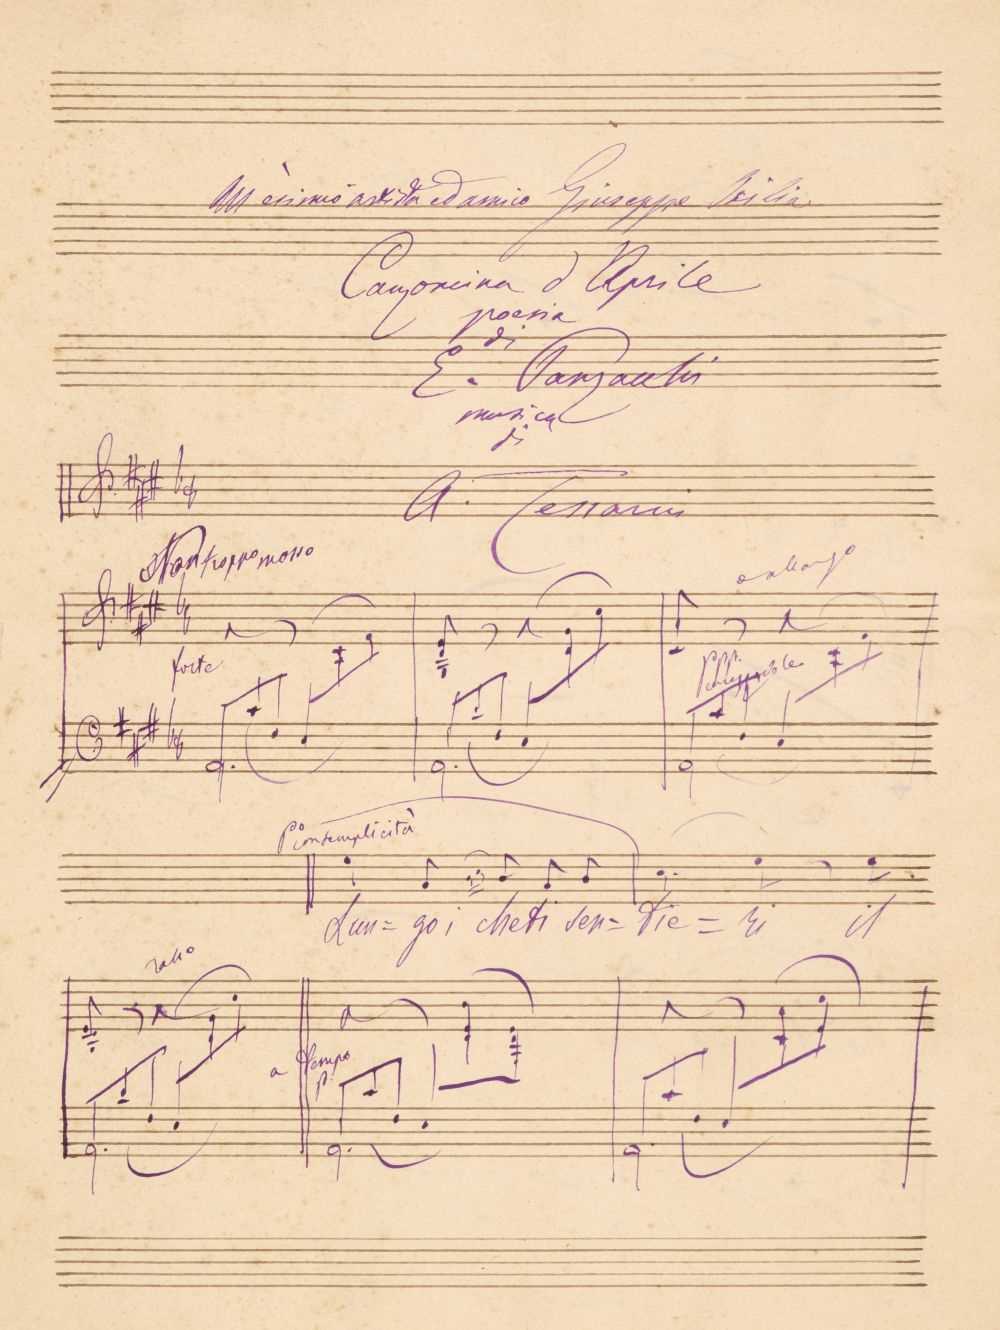 All'esimio artista ed amico Giuseppe
Canzoncina d'Aprile
poesia
di
E. Panzacchi
musica
di
A. Tessarin
Non troppo mosso
forte
pp.
P° con semplicità
Lun= go i cheti sen= tie = ri il
rall°
a tempo
p.